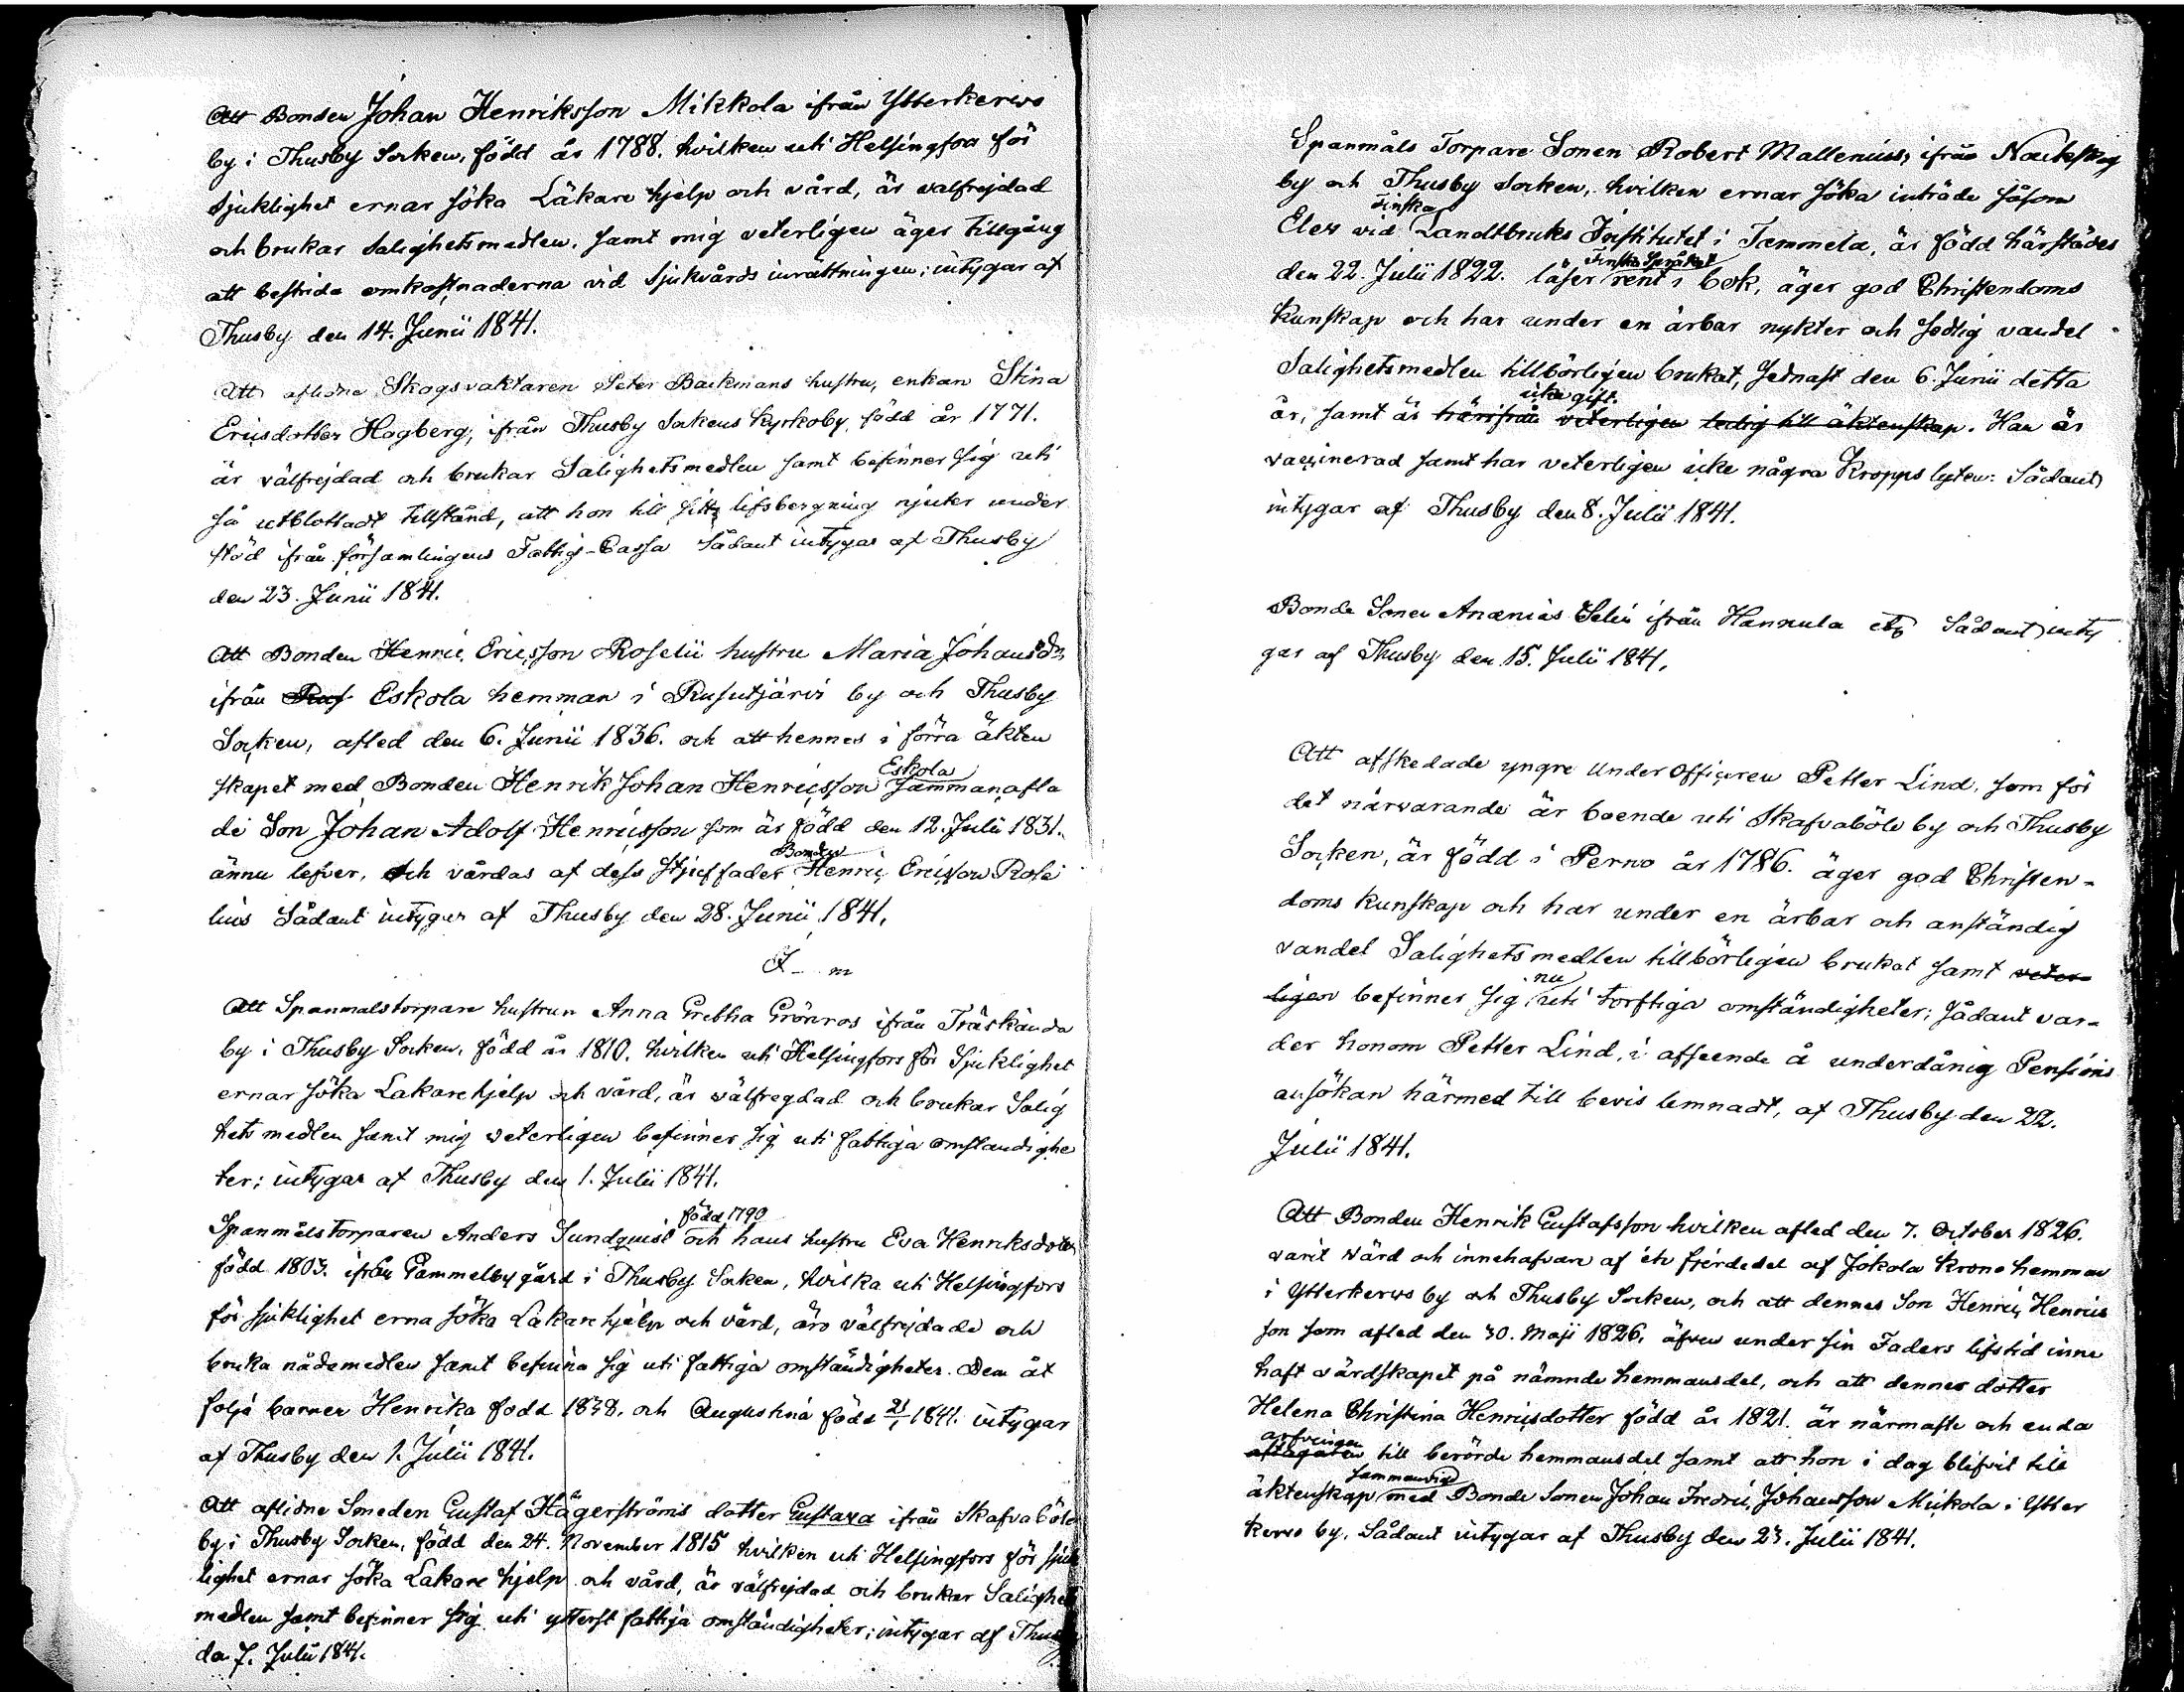 Att Bonden Johan Henriksson Mikkola ifrån Ytterkervo
by i Thusby Socken, född år 1788. hvilken uti Helsingfors för
sjuklighet ernar söka Läkare hjelp och vård, är välfrejdad
och brukar salighetsmedlen, samt mig veterligen äger tillgång
att bestrida omkostnaderna vid sjukvårds inrättningen; intygar af
Thusby den 14. Junii 1841.
Att aflidne Skogsvaktaren Peter Backmans hustru, enkan Stina
Ericsdotter Hagberg, ifrån Thusby Sockens Kyrkoby, född år 1771.
är välfrejdad och brukar Salighetsmedlen samt befinner sig uti
så utblottadt tillstånd, att hon till sitt lifsbergning njuter under
stöd ifrån församlingens Fattig-Cassa Sådant intygas af Thusby
den 23. Junii 1841.
Att Bonden Henric Ericsson Roselii hustru Maria Johansdr
ifrån Rus Eskola hemman i Rusutjärvi by och Thusby
Socken, afled den 6. Junii 1836. och att hennes i förra äkten
skapet med Bonden Henrik Johan Henricsson Eskola sammanafla
de Son Johan Adolf Henricsson som är född den 12. Julii 1831.
ännu lefver, och vårdas af dess stjuffader Bonden Henric Ericsson Rose
lius Sådant intygar af Thusby den 28. Junii 1841.
I - m
Att Spanmålstorpare hustrun Anna Gretha Grönros ifrån Träskända
by i Thusby Socken, född år 1810. hvilken uti Helsingfors för Sjuklighet
ernar söka Läkarehjelp och vård, är välfregdad och brukar Salig
hets medlen samt mig veterligen befinner sig uti fattiga omständighe
ter; intygar af Thusby den 1. Julii 1841.
Spanmålstorparen Anders Sundquist född 1790 och hans hustru Eva Henriksdotter
född 1803. ifrån Gammelby gård i Thusby Socken, hvilka uti Helsingfors
för sjuklighet erna söka Läkare hjelp och vård, äro välfrejdade och
bruka nådemedlen samt befinna sig uti fattiga omständigheter. Dem åt
följa barnen Henrika född 1838. och Augustina född 1841. intygar
af Thusby den 1. Julii 1841.
Att aflidne Smeden Gustaf Hägerströms dotter Gustava ifrån Skafvaböle
by i Thusby Socken, född den 24. November 1815 hvilken uti Helsingfors för sjuk
lighet ernar söka Läkare hjelp och vård, är välfrejdad och brukar Salighets
medlen samt befinner sig uti ytterst fattiga omständigheter; intygar af Thusby
den 7. Julii 1841.
Spanmåls Torpare Sonen Robert Mallenius, ifrån Nackskog
by och Thusby Socken, hvilken ernar söka inträde såsom
Elev vid Finska Landtbruks Institutet i Tammela, är född härstädes
den 22. Julii 1822. läser Finska Språket rent i bok, äger god Christendoms
kunskap och har under en ärbar nykter och sedlig vandel
Salighetsmedlen tillbörligen brukat, sednast den 6. Junii detta
år, samt är härifrån veterligen icke gift. ledig till äktenskap. Han är
vaccinerad samt har veterligen icke några Kropps lyten: Sådant
intygar af Thusby den 8. Julii 1841.
Bonde Sonen Ananias Selin ifrån Hannula etc Sådant inty
gar af Thusby den 15. Julii 1841.
Att afskedade yngre Under Officeren Petter Lind, som för
det närvarande är boende uti Skafvaböle by och Thusby
Socken, är född i Perno år 1786. äger god Christen-
doms kunskap och har under en ärbar och anständig
vandel Salighetsmedlen tillbörligen brukat samt veter-
ligen befinner sig nu uti torftiga omständigheter; sådant var-
der honom Petter Lind, i afseende å underdånig Pensions
ansökan härmed till bevis lemnadt, af Thusby den 22.
Julii 1841.
Att Bonden Henrik Gustafsson hvilken afled den 7. October 1826.
varit Värd och innehafvare af ett fjerdedel af Jokola krono hemman
i Ytterkervo by och Thusby Socken, och att dennes Son Henric Henrics
son som afled den 30. Maji 1826, äfven under sin Faders lifstid inne
haft värdskapet på nämnde hemmansdel, och att dennes dotter
Helena Christina Henricsdotter född år 1821. är närmaste och enda
arfvingen till berörde hemmansdel samt att hon i dag blifvit till
äktenskap sammanvigd med Bonde Sonen Johan Fredric Johansson Mickola i Ytter
kervo by, Sådant intygar af Thusby den 23. Julii 1841.